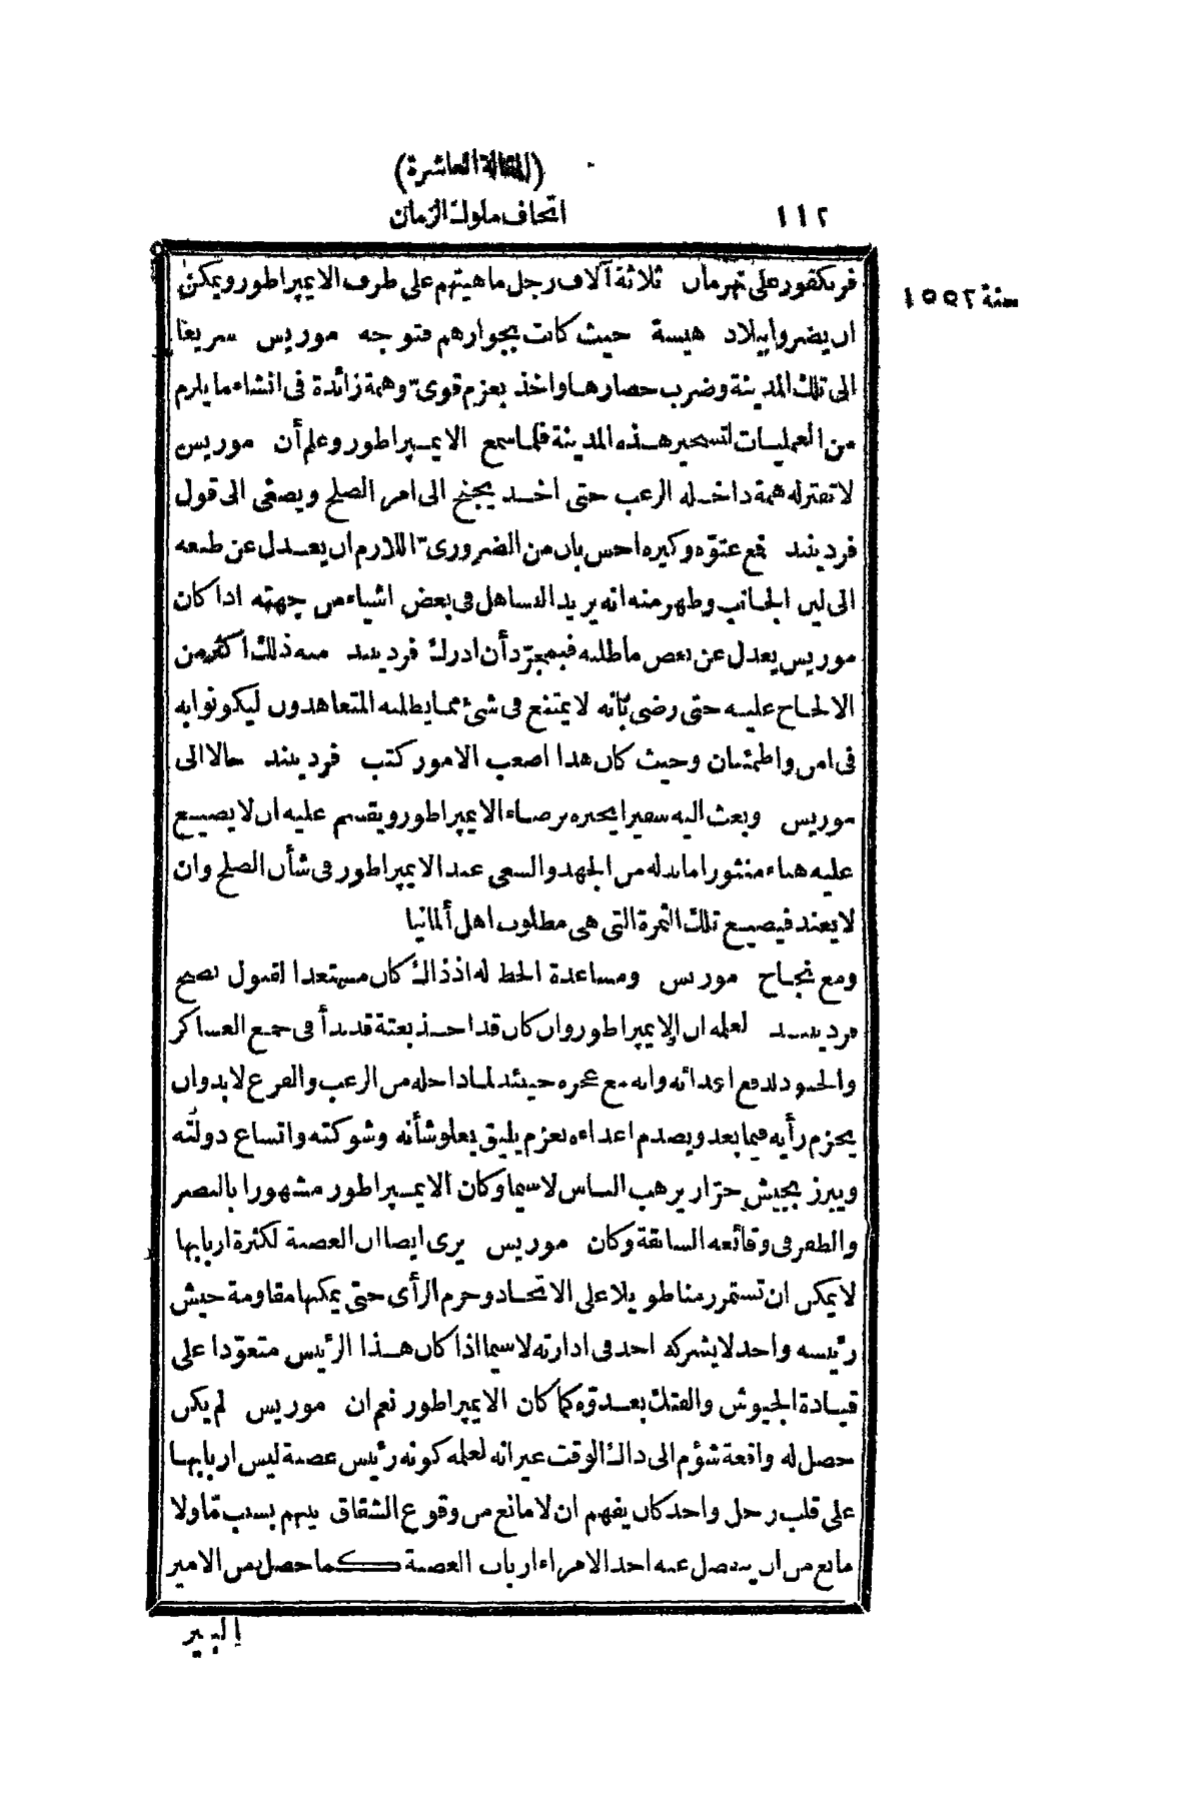 (المقالة العاشرة)
١١٢ اتحاف ملوك الزمان
سنة ١٥٥٢
فرنكفور على نهرمان ثلاثة آلاف رجل ماهيتهم على طرف الايمپراطور ويمكن
ان يضروا ببلاد هيسة حيث كانت بجوارهم فتوجه موريس سريعا
الى تلك المدينة وضرب حصارها واخذ بعزم قوىّ وهمة زائدة فى انشاء ما يلزم
من العمليات لتسخير هذه المدينة فلما سمع الايمپراطور وعلم أن موريس
لا تفترله همة داخله الرعب حتى اخذ يجنح الى امر الصلح ويصغى الى قول
فرديند فمع عتوّه وكبره احس بان من الضرورىّ اللازم ان يعدل عن طبعه
الى لين الجانب وظهر منه انه يريد التساهل فى بعض اشياء من جهته اذا كان
موريس يعدل عن بعض ما طلبه فبمجرّد أن ادرك فرديند منه ذلك اكثر من
الالحاح عليه حتى رضى بانه لا يمتنع فى شئ مما يطلبه المتعاهدون ليكونوا به
فى امن واطمئنان وحيث كان هذا اصعب الامور كتب فرديند حالا الى
موريس وبعث اليه سفيرا يخبره برضاء الايمپراطور ويقسم عليه ان لا يضيع
عليه هباء منثورا ما بذله من الجهد والسعى عند الايمپراطور فى شأن الصلح وان
لا يعند فيضيع تلك الثمرة التى هى مطلوب اهل ألمانيا
ومع نجاح موريس ومساعدة الحظ له اذ ذاك كان مستعدا لقبول نصح
فرديند لعلمه ان الايمپراطور وان كان قد اخذ بغتة قد بدأ فى جمع العساكر
والجنود لدفع اعدائه وانه مع عجزه حينئذ لما داخله من الرعب والفزع لا بد وان
يحزم رأيه فيما بعد ويصدم اعداءه بعزم يليق بعلو شأنه وشوكته واتساع دولته
ويبرز بجيش جرّار يرهب الناس لا سيما وكان الايمپراطور مشهورا بالنصر
والظفر فى وقائعه السابقة وكان موريس يرى ايضا ان العصبة لكثرة اربابها
لا يمكن ان تستمر زمنا طويلا على الاتحاد وحزم الرأى حتى يمكنها مقاومة جيش
رئيسه واحد لا يشركه احد فى ادارته لا سيما اذا كان هذا الرئيس متعوّدا على
قيادة الجيوش والفتك بعدوّه كما كان الايمپراطور نعم ان موريس لم يكن
حصل له واقعة شؤم الى ذاك الوقت غير انه لعلمه كونه رئيس عصبة ليس اربابها
على قلب رجل واحد كان يفهم ان لا مانع من وقوع الشقاق بينهم بسبب مّا ولا
مانع من ان ينفصل عنه احد الامراء ارباب العصبة كما حصل من الامير
البير